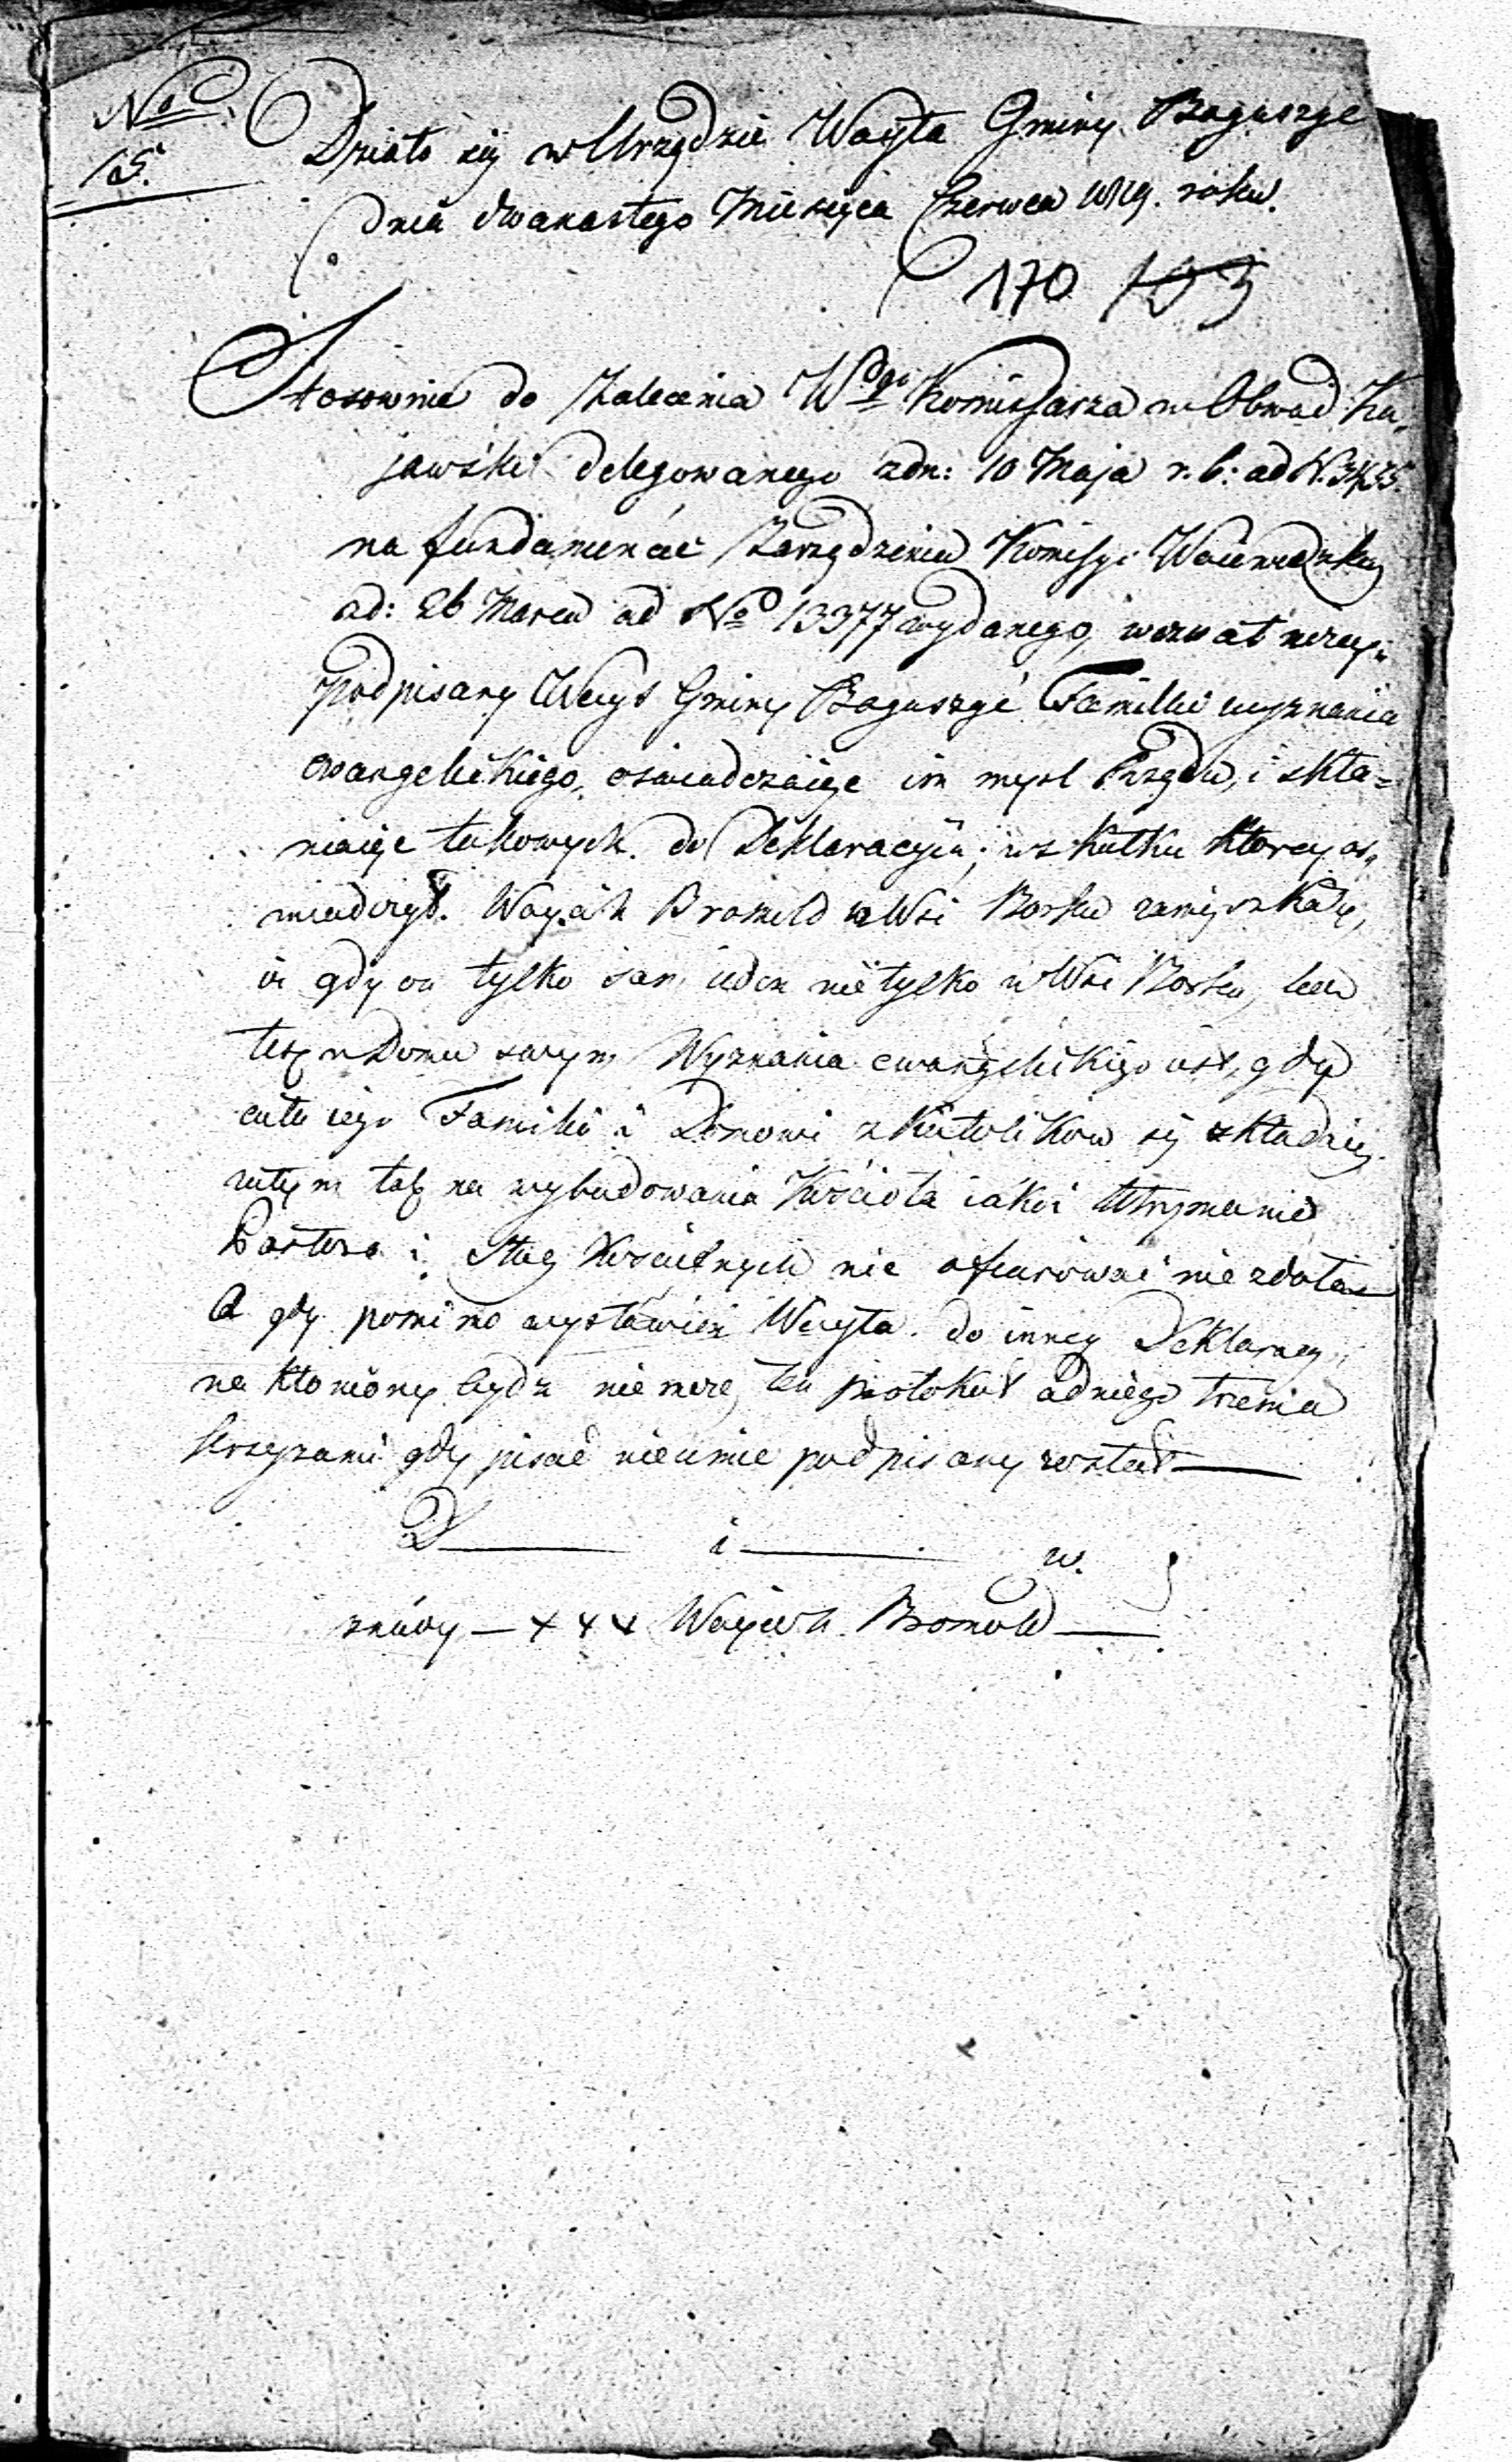 No
15.
Działo się w Urzędzie Woyta Gminy Boguszyce
dnia dwanastego Miesiąca Czerwca 1819. roku.
170 103
Stosownie do Zalecenia Wgo Kommissarza w Obwód Ku„
jawski delegowanego zdn: 10 Maja r. b: ad N. 3435.
na fundamencie Zarządzenia Komissyi Woiewodzkiey
ad: 26 Marca ad No 13377 wydanego, wezwał niżey
podpisany Woyt Gminy Boguszyce Familie wyznania
ewangelickiego, oświadczaiąc im myśl Rządu, i skła=
niaiąc takowych do Deklaracyi; w skutku którey oś„
wiadczył Woyciech Bromold w Wsi Borku zamięszkały,
iż gdy on tylko sam ieden nie tylko w Wsi Borku, lecz
też w Domu swym Wyznania ewangelickiego iest, gdy
cała iego Familia i Domowi z Katolików się składaią
zatym tak na wybudowania Kościoła iako i Utrzymanie
Pastora i Sług Kościelnych nic ofiarować nie zdoła
A gdy pomimo wystawień Woyta do inney Deklaracyi
nakłoniony bydz nie może, ten protokuł od niego trzema
krzyzami gdy pisać nie umie podpisany został
D i w.
znaky — + + + Woyciech Bromold